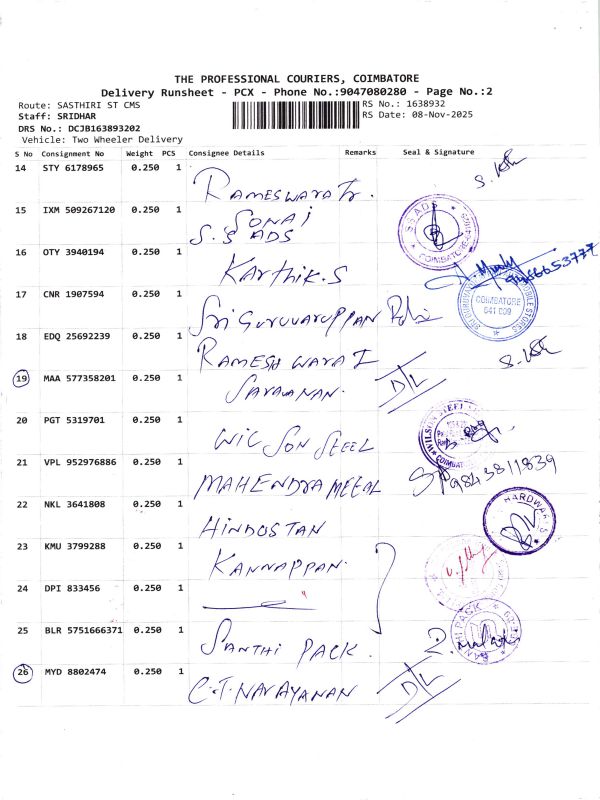 THE PROFESSIONAL COURIERS, COIMBATORE
Delivery Runsheet - PCX - Phone No.:9047080280 - Page No.:2
Route: SASTHIRI ST CMS
RS No.: 1638932
Staff: SRIDHAR
RS Date: 08-Nov-2025
DRS No.: DCJB163893202
Vehicle: Two Wheeler Delivery
S No Consignment No Weight PCS Consignee Details Remarks Seal & Signature
14 STY 6178965 0.250 1 RAMESWARA Tr.
15 IXM 509267120 0.250 1 SONAI
S.S ADS
S S ADS COIMBATORE
16 OTY 3940194 0.250 1 Karthik.S
17 CNR 1907594 0.250 1 Sri Guruvaruppan
COIMBATORE
641 009
18 EDQ 25692239 0.250 1 RAMESHWARA I
19 MAA 577358201 0.250 1 SARAWANAN. D/L
20 PGT 5319701 0.250 1 WILSON STEEL
WILSON STEEL
21 VPL 952976886 0.250 1 MAHENDRA METAL 9843811839
22 NKL 3641808 0.250 1 HINDOSTAN
HARDWARES
23 KMU 3799288 0.250 1 KANNAPPAN.
24 DPI 833456 0.250 1 "
25 BLR 5751666371 0.250 1 SANTHI PACK.
26 MYD 8802474 0.250 1 C.T. NARAYANAN D/L